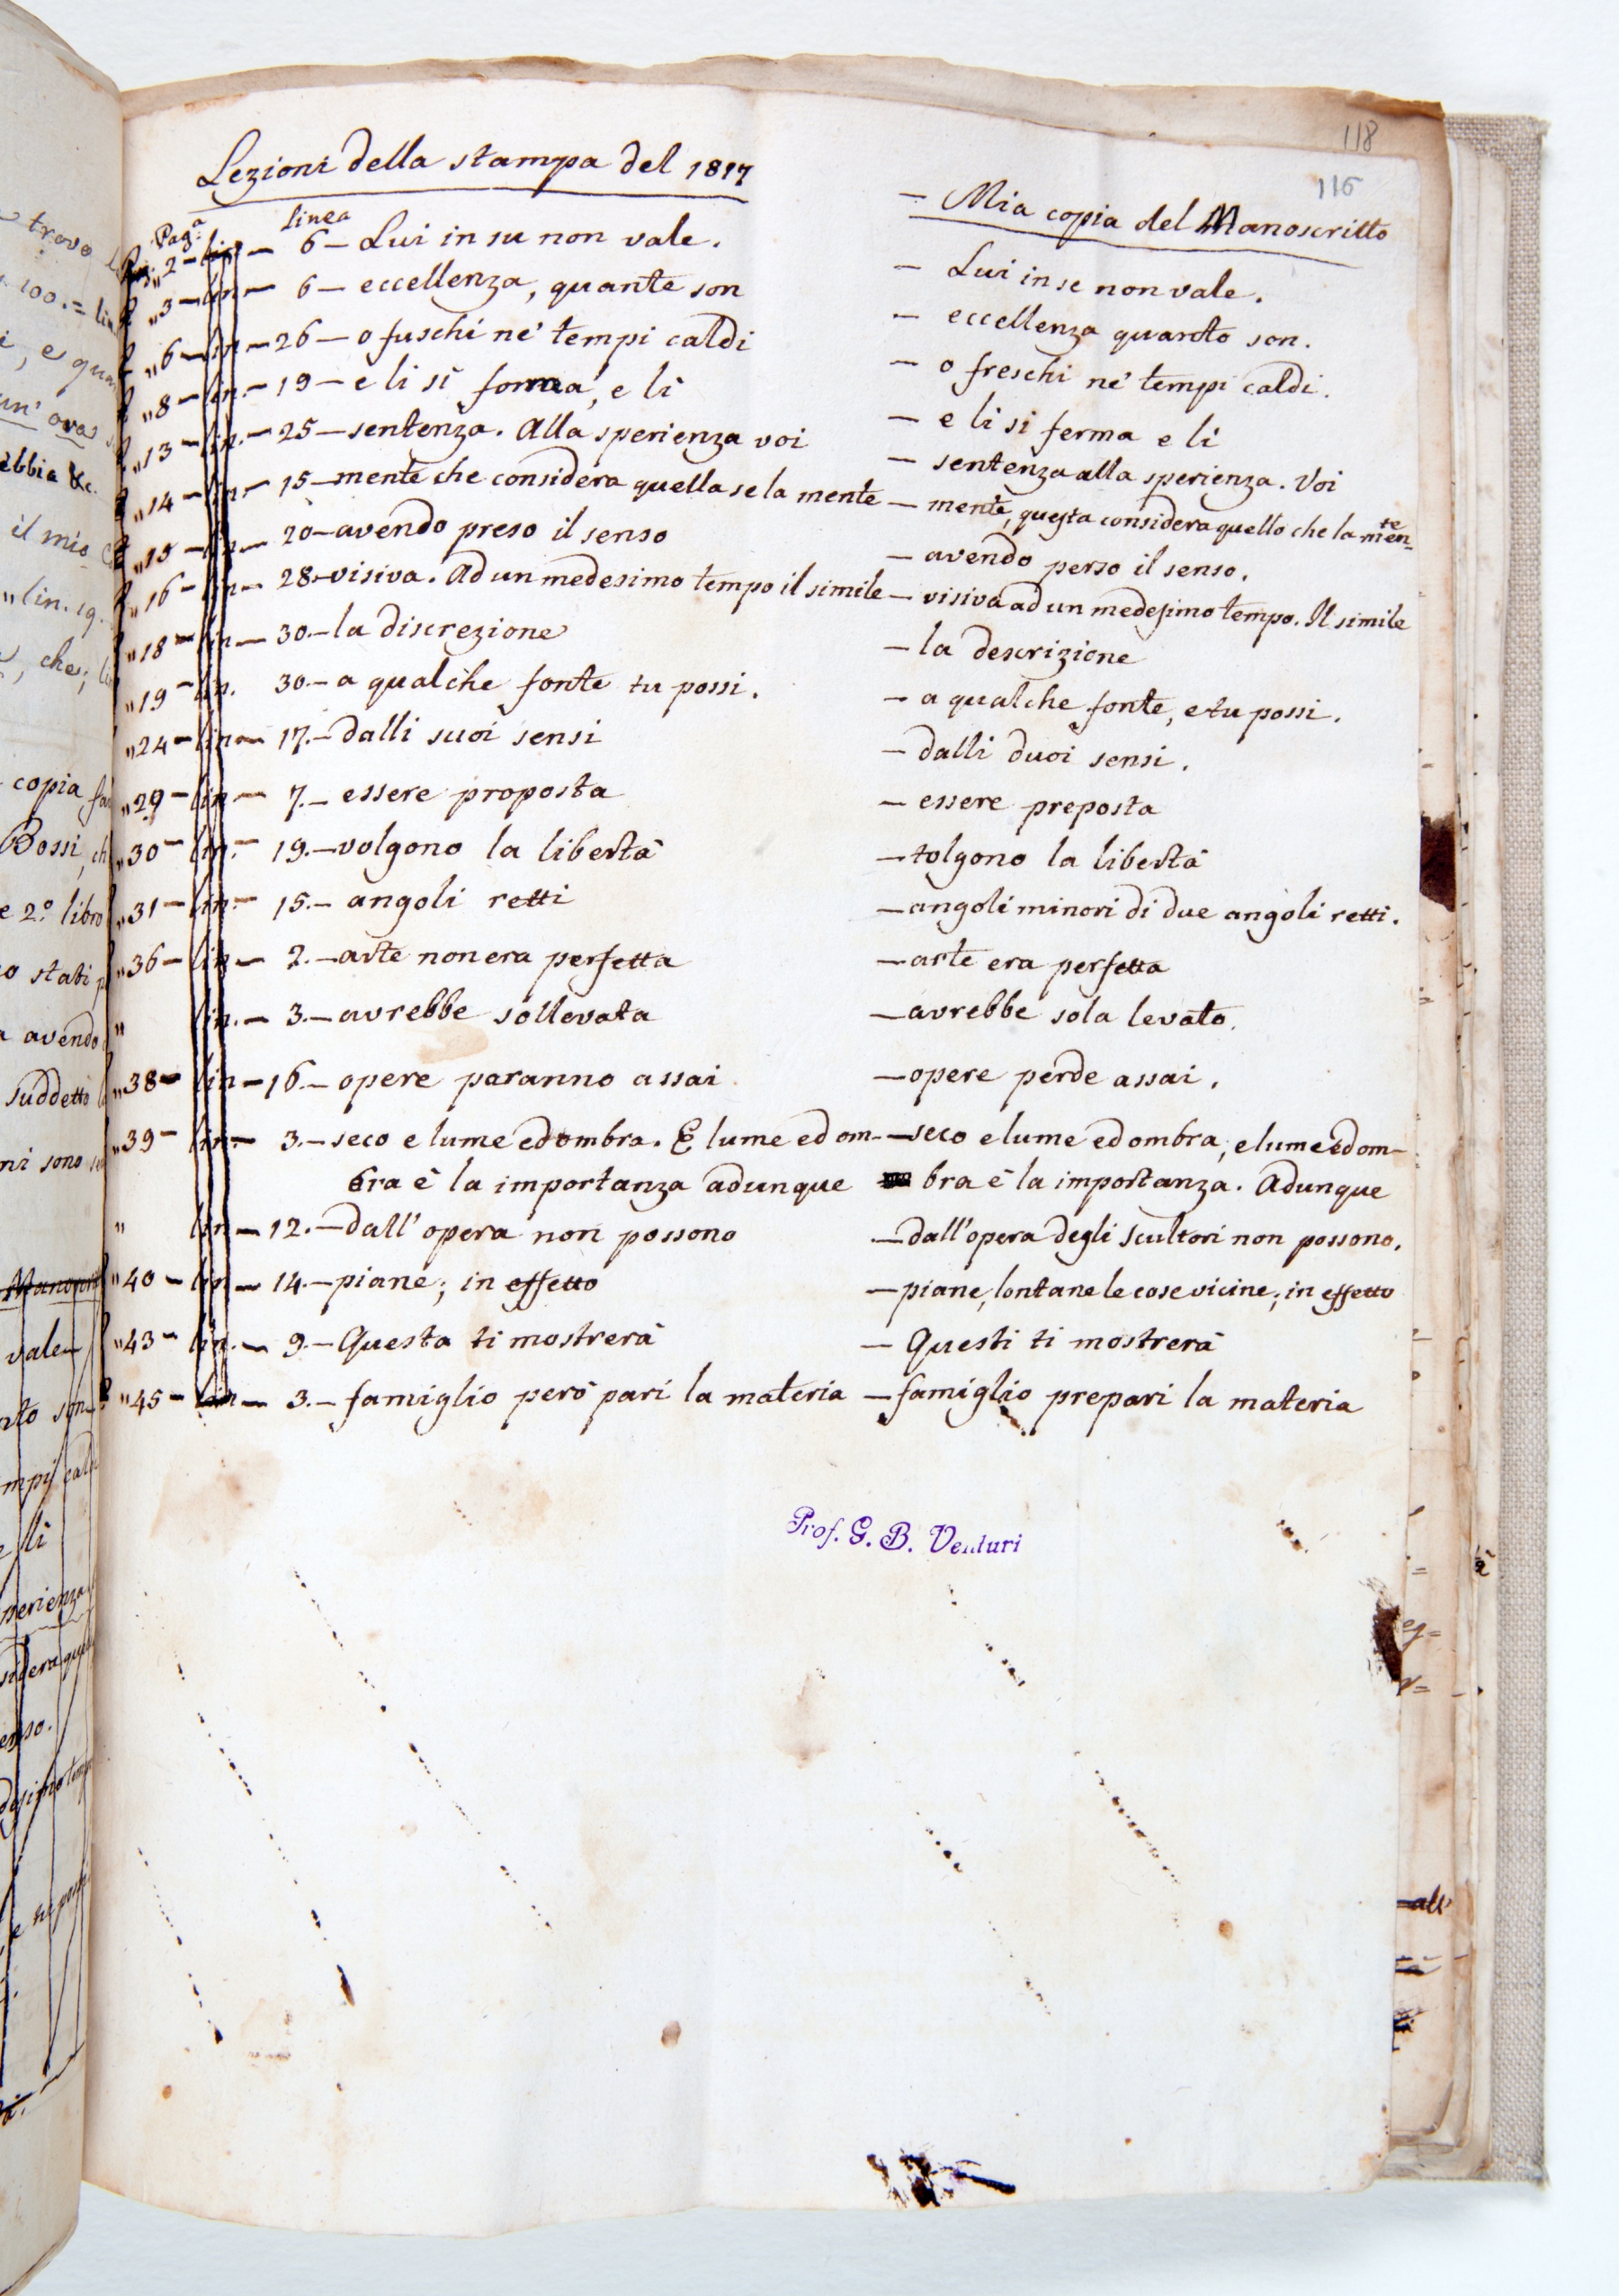 118
116
Lezioni della stampa del 1817 — Mia copia del Manoscritto
Pag.ª linea
"2 — 6 — Lui in su non vale. — Lui in se non vale.
"3 — lin — 6 — eccellenza, quante son — eccellenza quanto son.
"6 — lin — 26 — o fuschi ne' tempi caldi — o freschi ne' tempi caldi.
"8 — lin. — 19 — e li si forma, e li — e li si ferma e li
"13 — lin. — 25 — sentenza. Alla sperienza voi — sentenza alla sperienza. Voi
"14 — lin. — 15 — mente che considera quella se la mente — mente, questa considera quello che la mente
"15 — lin — 20 — avendo preso il senso — avendo perso il senso.
"16 — lin — 28. — visiva. Ad un medesimo tempo il simile — visiva ad un medesimo tempo. Il simile
"18 — lin — 30. — la discrezione — la descrizione
"19 — lin. 30. — a qualche fonte tu possi. — a qualche fonte, e tu possi.
"24 — lin — 17. — dalli suoi sensi — dalli duoi sensi.
"29 — lin — 7. — essere proposta — essere preposta
"30 — lin. — 19. — volgono la libertà — tolgono la libertà
"31 — lin. — 15. — angoli retti — angoli minori di due angoli retti.
"36 — lin — 2. — arte non era perfetta — arte era perfetta
" lin. — 3. — avrebbe sollevata — avrebbe sola levato.
"38 — lin — 16. — opere paranno assai — opere perde assai.
"39 — lin. — 3. — seco e lume ed ombra. E lume ed om- — seco e lume ed ombra; e lume ed om-
bra è la importanza adunque bra è la importanza. Adunque
" lin — 12. — dall' opera non possono — dall' opera degli scultori non possono.
"40 — lin — 14. — piane; in effetto — piane, lontane le cose vicine; in effetto
"43 — lin. — 9. — Questa ti mostrerà — Questi ti mostrerà
"45 — lin — 3. — famiglio però pari la materia — famiglio prepari la materia
Prof. G. B. Venturi
trovo
100. =
un' ora
ebbia &c.
il mio
"lin. 19.
, che;
copia
Bossi,
e 2.º libro
stati
avendo
suddetto
ni sono
vale
li